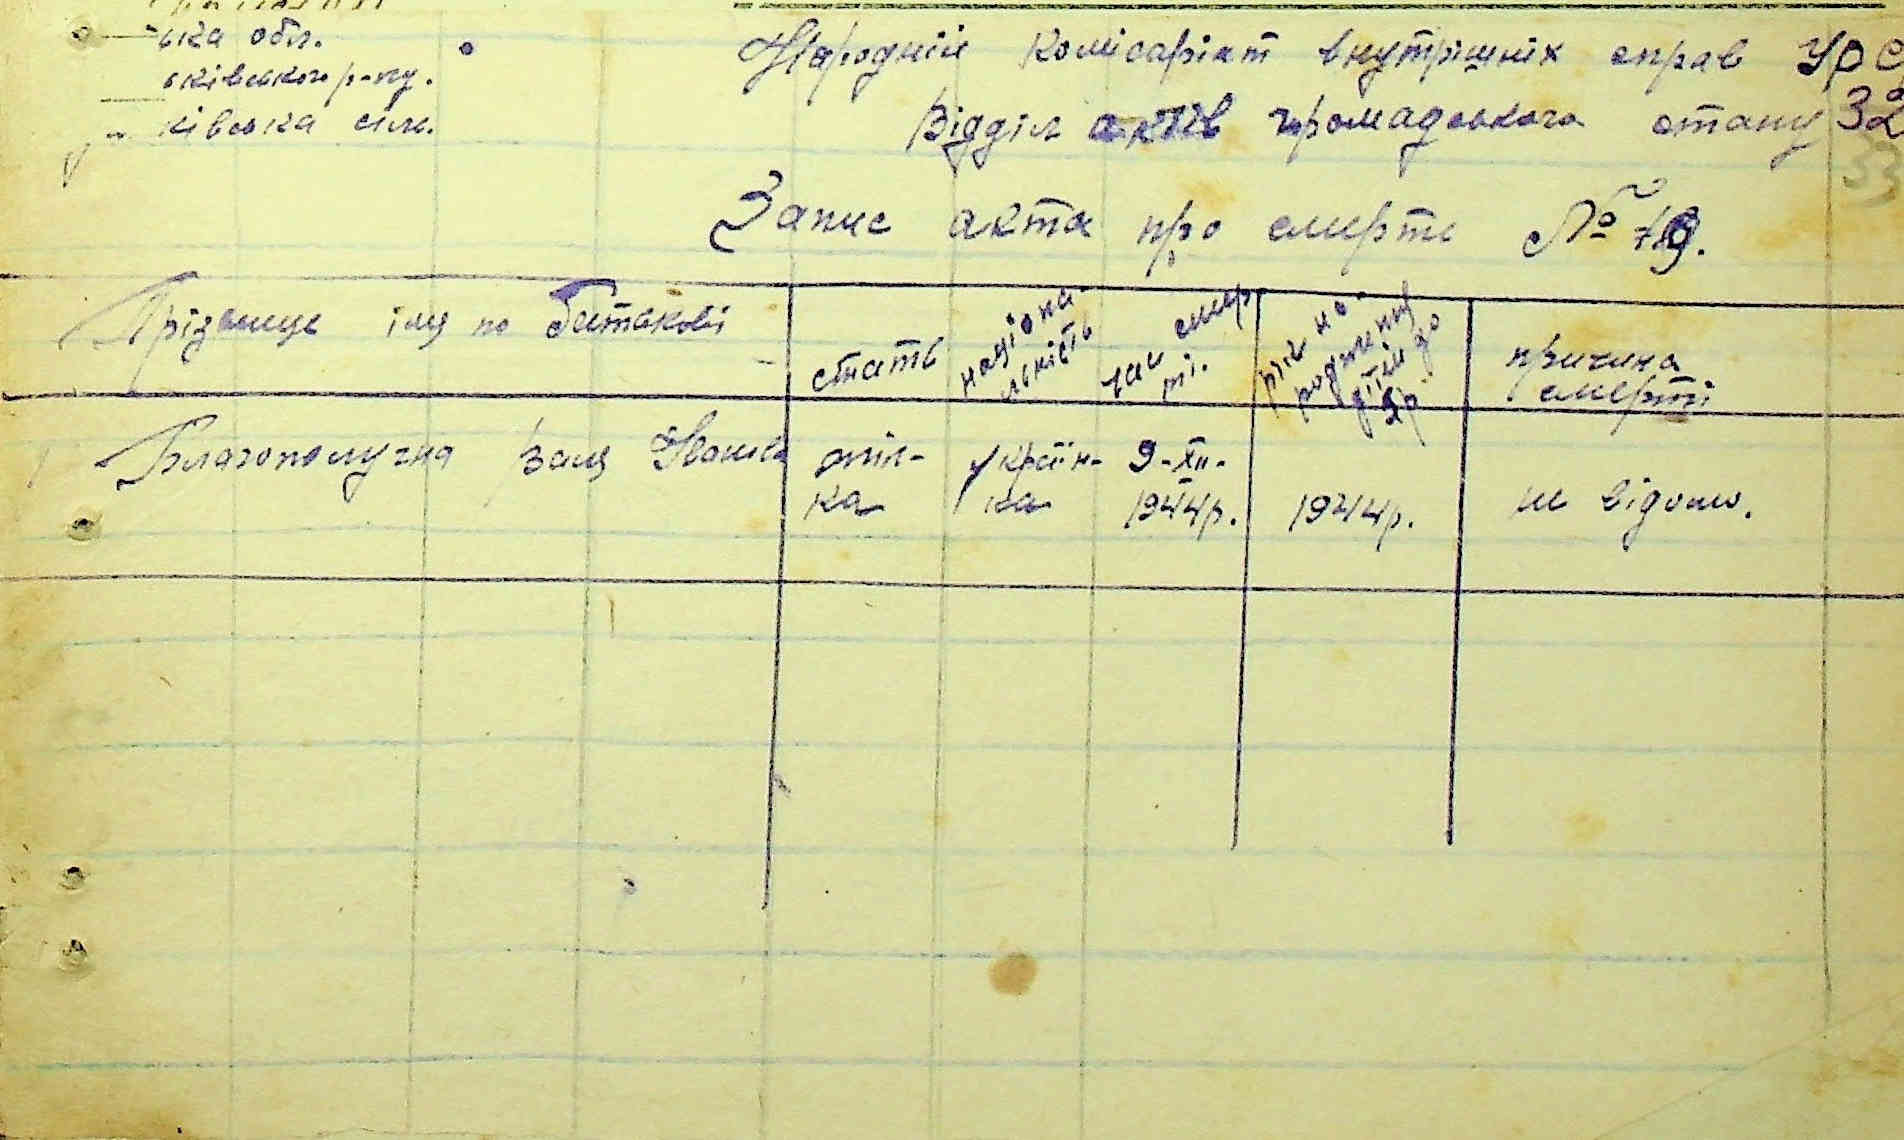 ька обл.
ківського р-ну.
ківська сіль.
Народній комісаріат внутрішніх справ УРС
Відділ актів громадського стану 32
33
Запис акта про смерть №
Прізвище імя по батькові
стать
націона
льність
час смер
ті.
рік на
родження
дітям до
причина
смерті
Благополучна Івanівна
укрїїн- 9-XII-
ка ка 1944р. 1944р. не відомо.